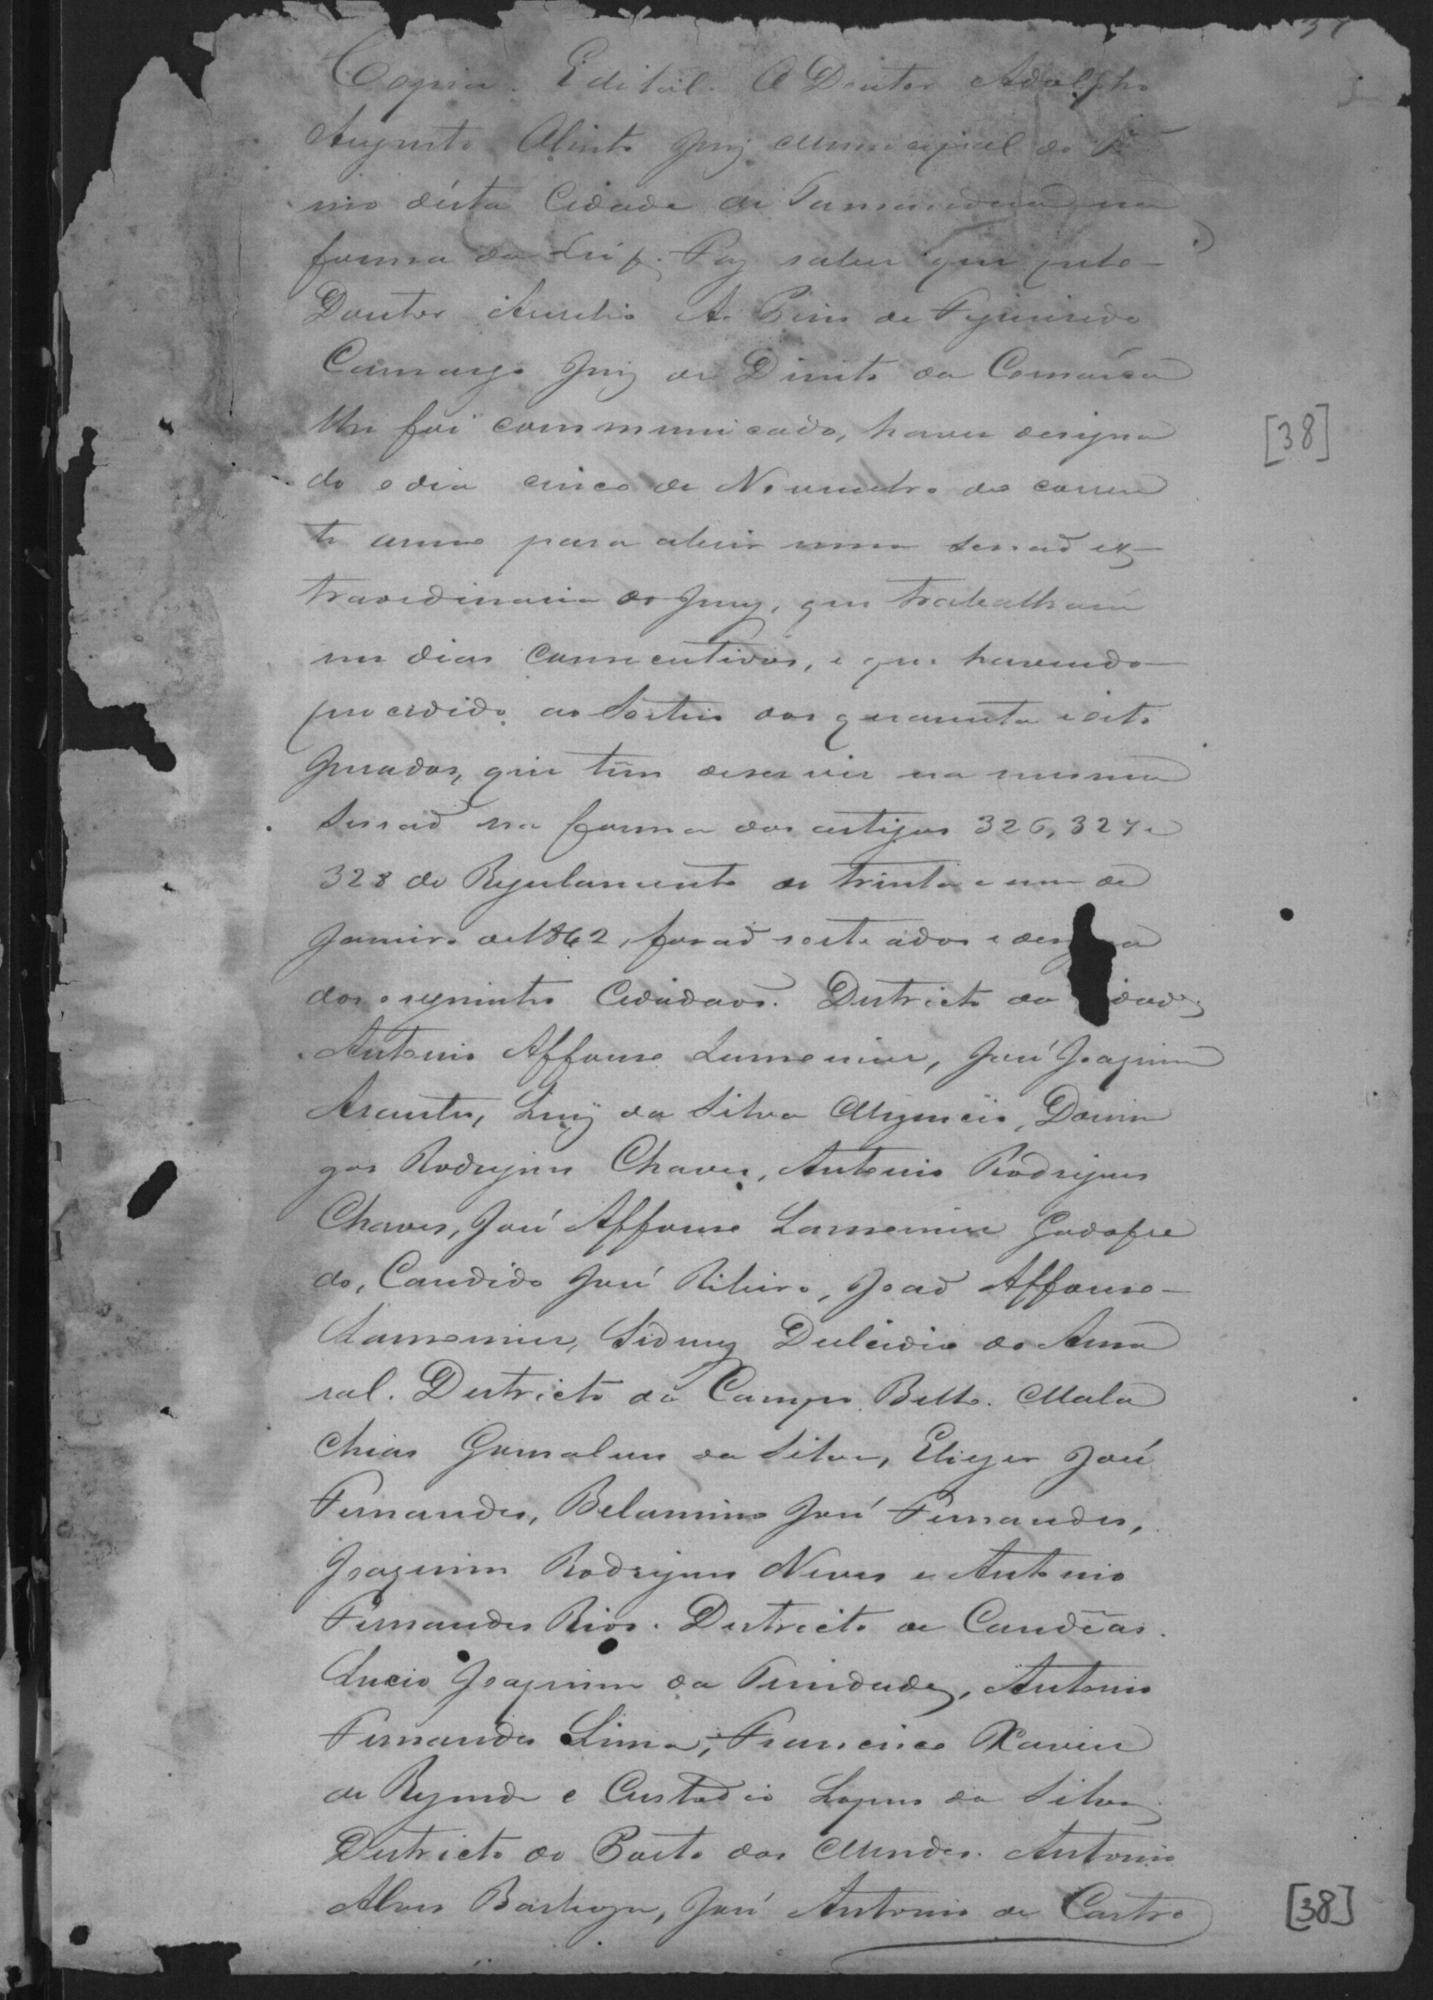 37
Copia. Edital. O Doutor Adolpho
Augusto Olinto Juiz Municipal do Ter
mo désta Cidade de Tamanduá, na
forma da Lei f. Faz saber que pelo
Doutor Aurelio A. Pires de Figueiredo
Camargo Juiz de Direito da Comárca
lhe foi communicado, haver designa
do o dia cinco de Novembro do corren
te anno para abrir uma sessaõ ex-
traordinaria do Jury, que trabalhará
em dias consecutivos, e que havendo
procedido ao sorteio dos quarenta e oito
Jurados, que tem de servir na mesma
sessaõ na forma dos artigos 326, 327 e
328 do Regulamento de trinta e um de
Janeiro de 1842, foraõ sorteados e desi a
dos os seguintes Cidadaõs. Districto da idade
Antonio Affonso Lamounier, José Joaquim
Arantes, Luiz da Silva Domin
gos Rodrigues Chaves, Antonio Rodrigues
Chaves, José Affonso Lamounier Godofre
do, Candido José Ribeiro, Joaõ Affonso
Lamounier, Sidney Delcidio do Ama
ral. Districto do Campo Bello. Mala
chias Gonsalves da Silva, Eliezer José
Fernandes, Belarmino José Fernandes,
Joaquim Rodrigues Neves e Antonio
Fernandes Rios. Districto de Candêas.
Lucio Joaquim da Trindade, Antonio
Fernandes Lima, Francisco Xavier
de Rezende e Custodio Lopes da Silva
Districto do Porto dos Mendes. Antonio
Alves Barboza, José Antonio de Castro
[38]
[38]